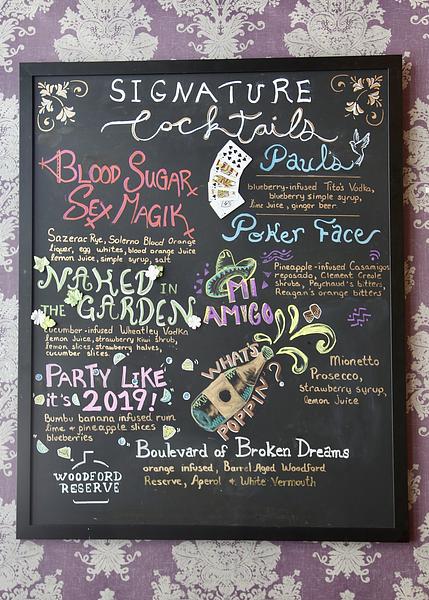 SIGNATURE
Cocktails
BLOOD SUGAR
SEX MAGIK
Sazerac Rye, Solerno Blood Orange
liquer, egg whites, blood orange juice
lemon Juice, simple syrup, salt
Paul's
Poker Face
blueberry-infused Tito's Vodka,
blueberry simple syrup,
lime Juice, ginger beer
NAKED IN
THE GARDEN
cucumber-infused Wheatley Vodka
lemon Juice, strawberry kiwi shrub,
lemon slices, strawberry halves,
cucumber slices
MI
AMIGO
Pineapple-infused Casamigos
reposado, Clement Creole
shrubs, Peychaud's bitters,
Reagan's orange bitters
PARTY LIKE
it's 2019!
Bumbu banana infused rum
lime & pineapple slices
blueberries
WHAT'S
POPPIN'?
Mionetto
Prosecco,
strawberry syrup,
lemon Juice
Boulevard of Broken Dreams
orange infused, Barrel Aged Woodford
Reserve, Aperol & White Vermouth
WOODFORD
RESERVE